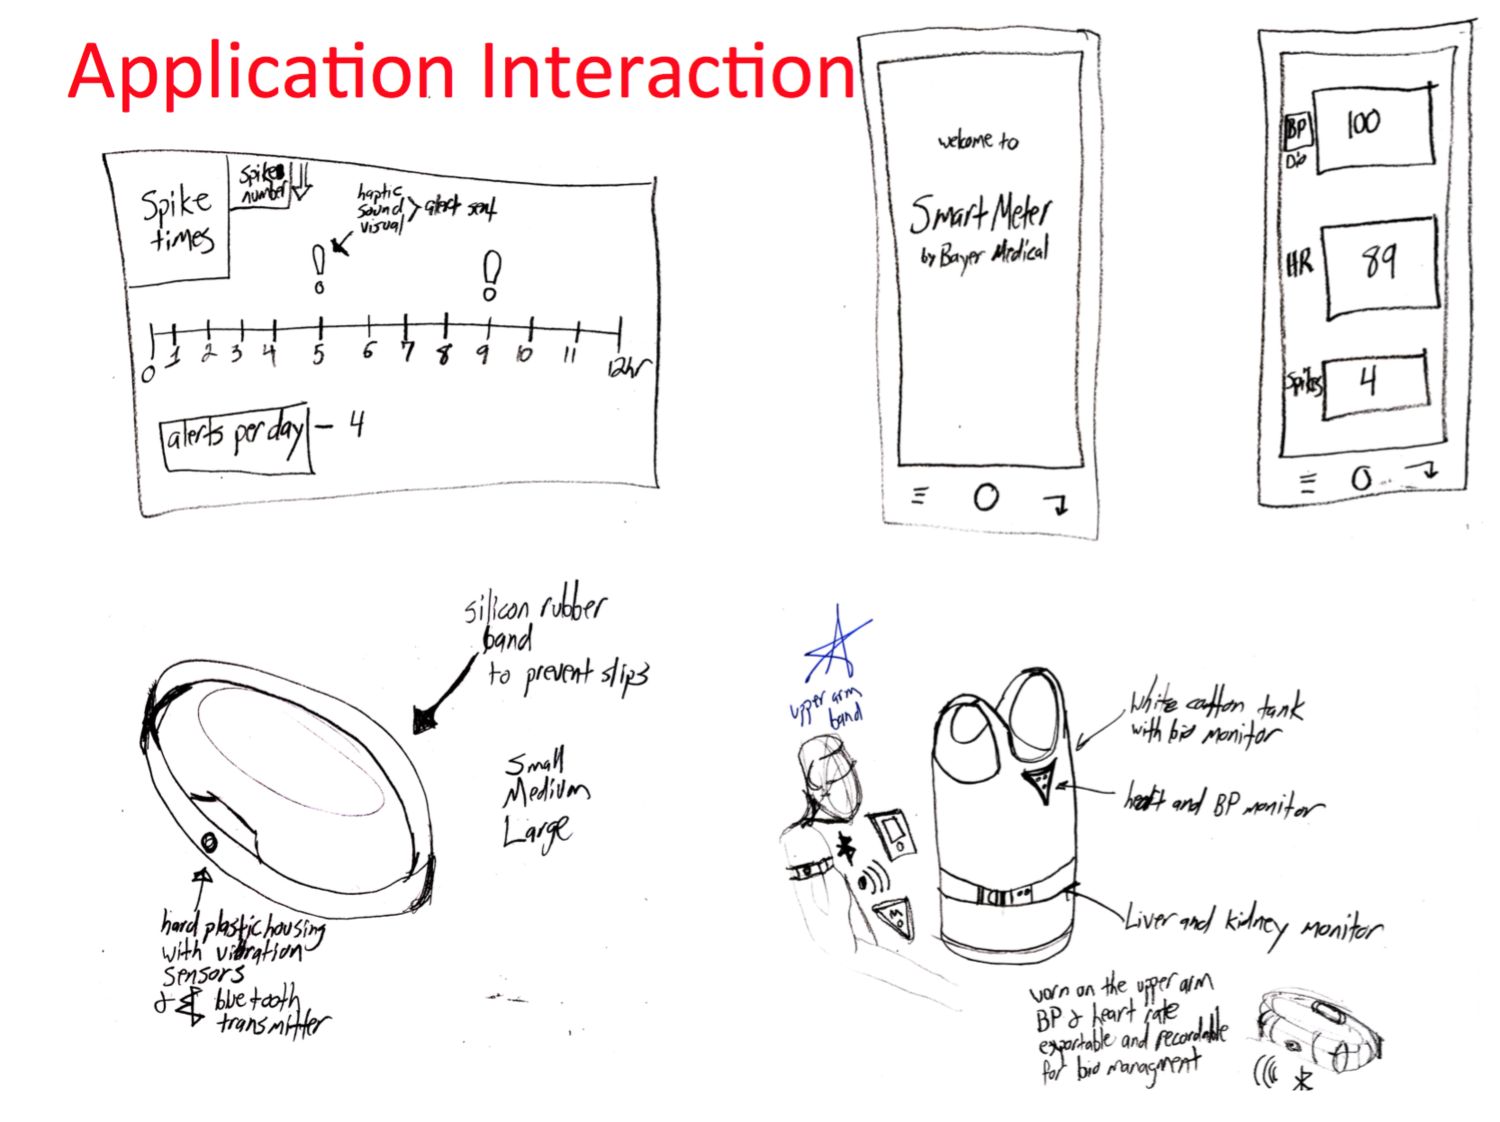 Application Interaction
Spike
times
Spike
number
haptic
sound
visual
alert sent
0 1 2 3 4 5 6 7 8 9 10 11 12hr
alerts per day - 4
welcome to
Smart Meter
by Bayer Medical
BP
Dia
100
HR
89
Spikes
4
silicon rubber
band
to prevent slips
Small
Medium
Large
hard plastic housing
with vibration
sensors
& bluetooth
transmitter
upper arm
band
White cotton tank
with bio monitor
heart and BP monitor
Liver and kidney monitor
worn on the upper arm
BP & heart rate
exportable and recordable
for bio managment